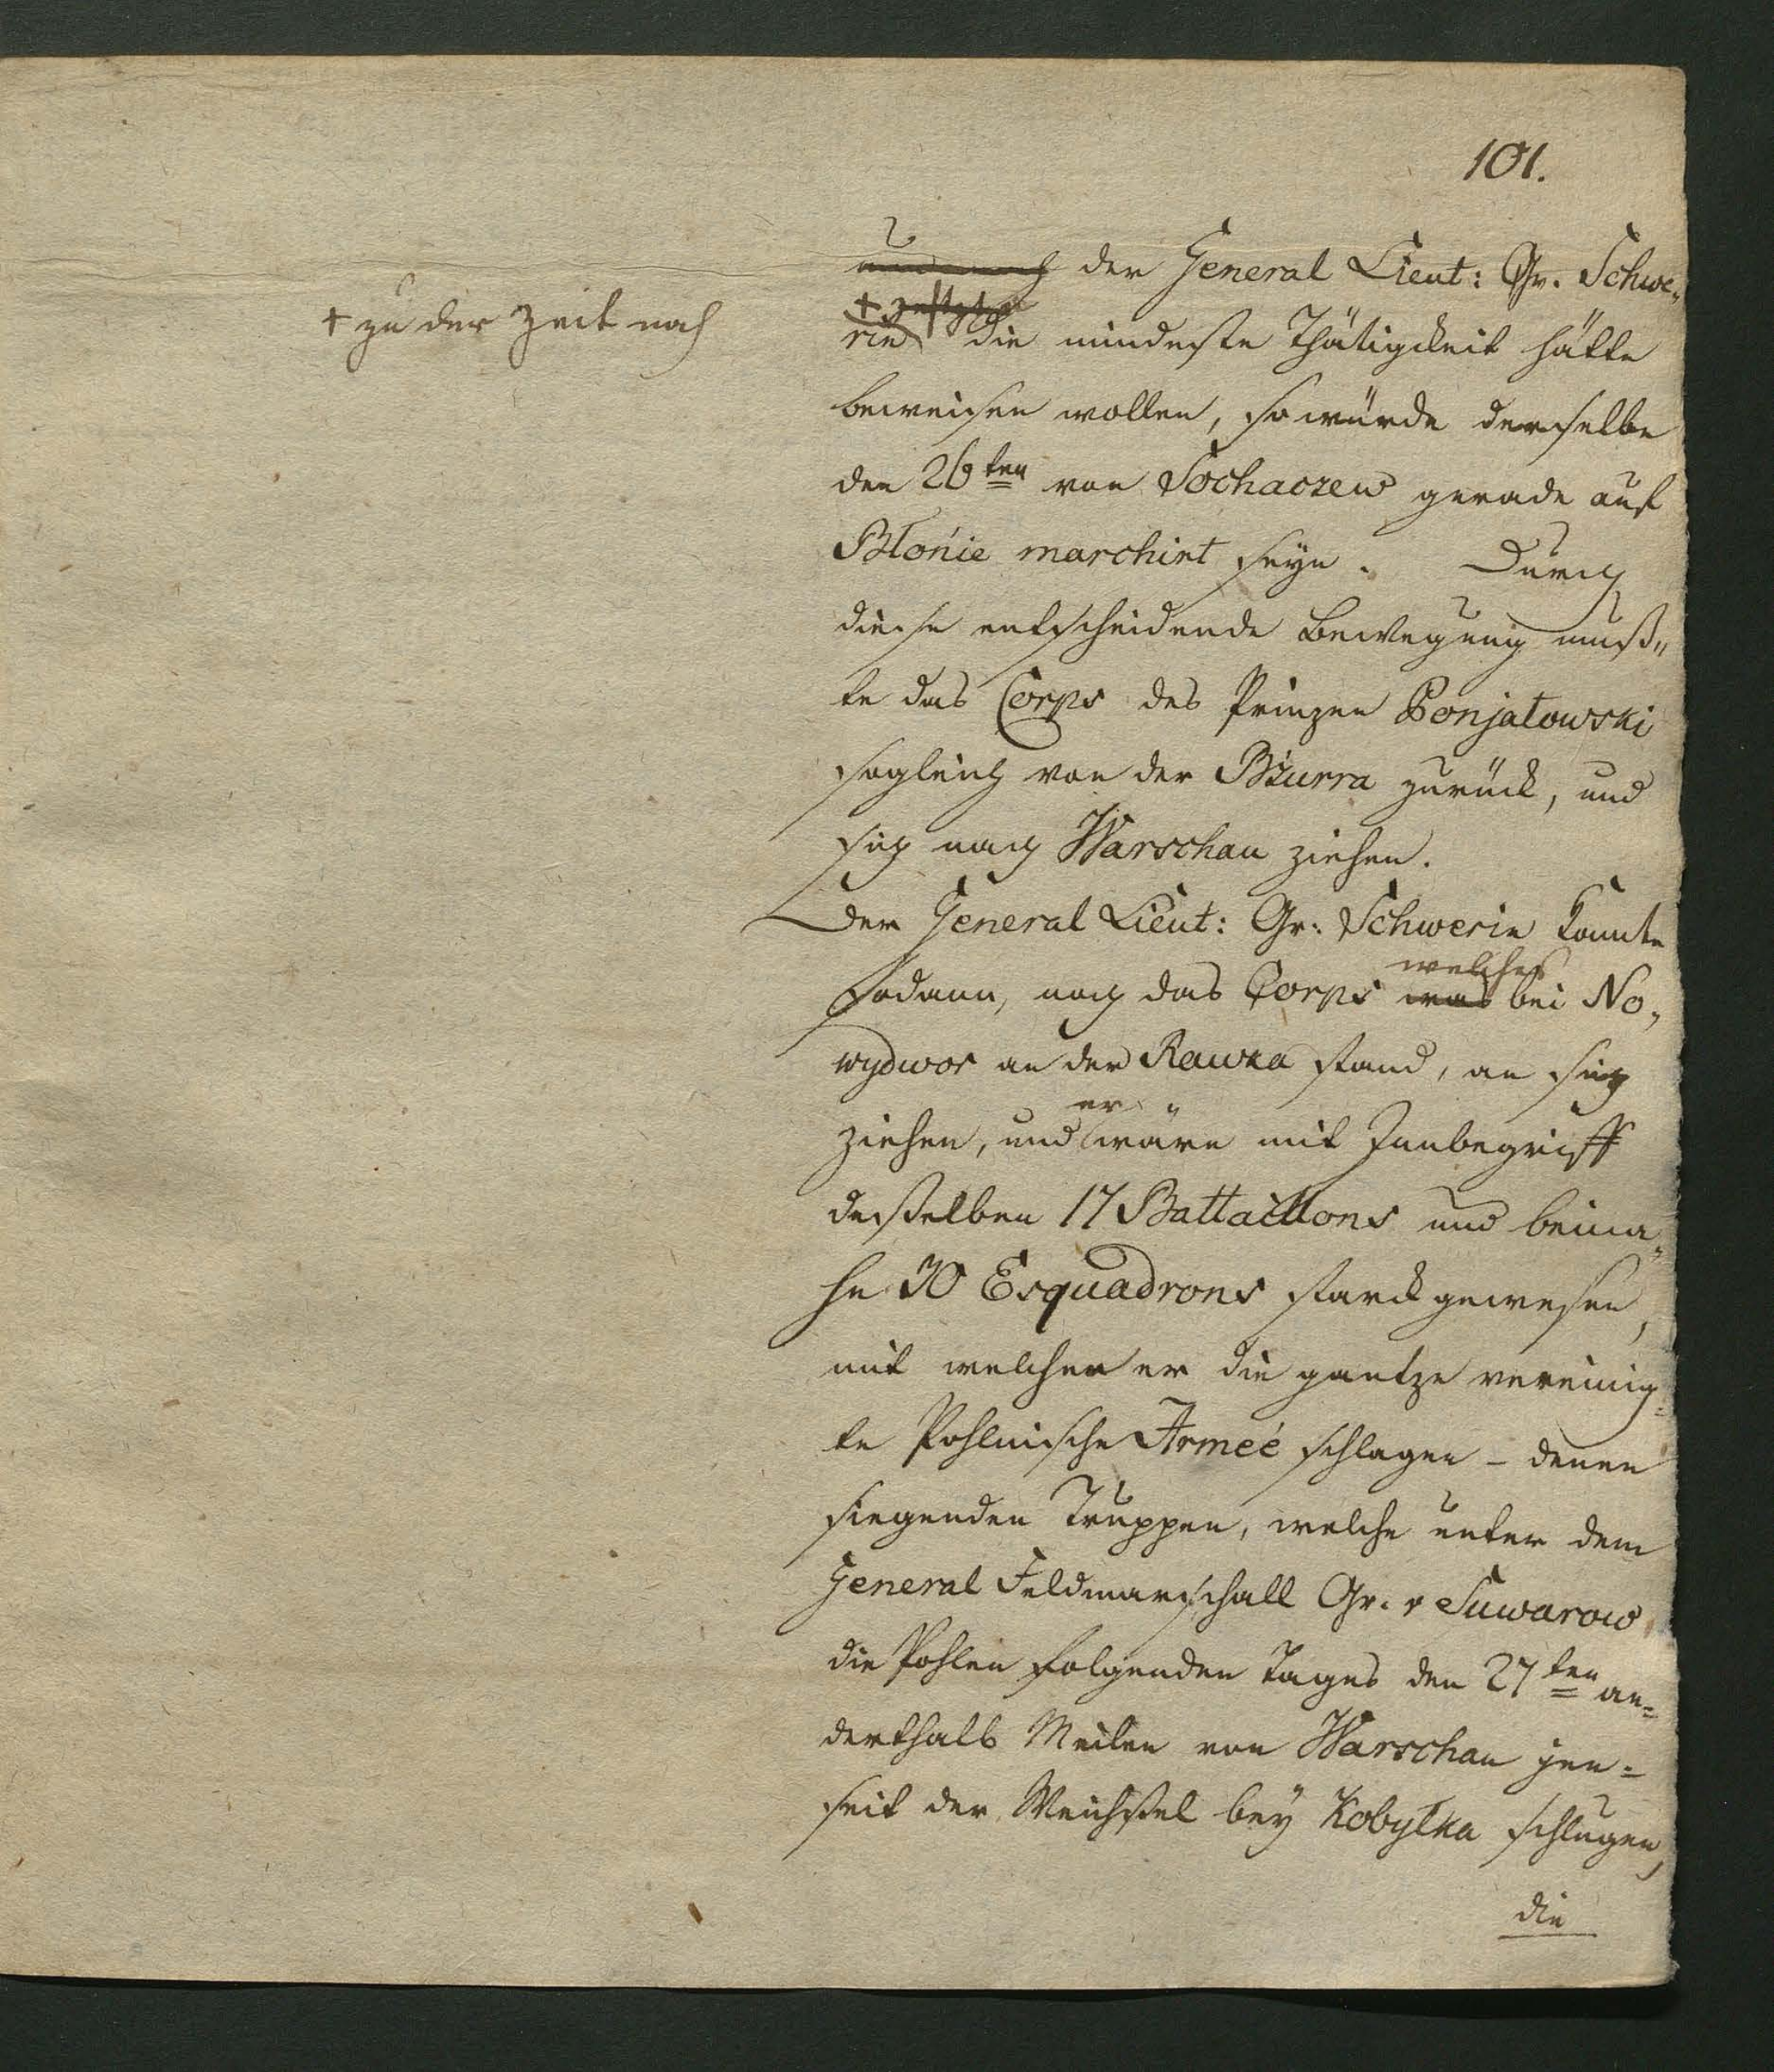 101.
der General Lieut: Gr. Schwe„
+ zu der Zeit noch
rin + die mindeste Thätigkeit hätte
beweisen wollen, so würde derselbe
den 26ten von Sochaczew gerade auf
Błonie marchirt seyn. Durch
diese entscheidende Bewegung muß„
te das Corps des Prinzen Ponjatowski
sogleich von der Bzurra zurück, und
sich nach Warschau ziehen.
Der General Lieut: Gr: Schwerin konnte
welches
sodann, noch das Corps was bei No„
wydwor an der Rawka stand, an sich
er
ziehen, und wäre mit Innbegriff
desselben 17 Battaillons und beina„
he 30 Esquadrons starck gewesen,
mit welchen er die gantze vereinig=
te Pohlnische Armeé schlagen – denen
siegenden Truppen, welche unter dem
General Feldmarschall Gr. v Suwarow
die Pohlen folgenden Tages den 27ten an=
derthalb Meilen von Warschau jen=
seit der Weichsel bey Kobyłka schlugen,
die